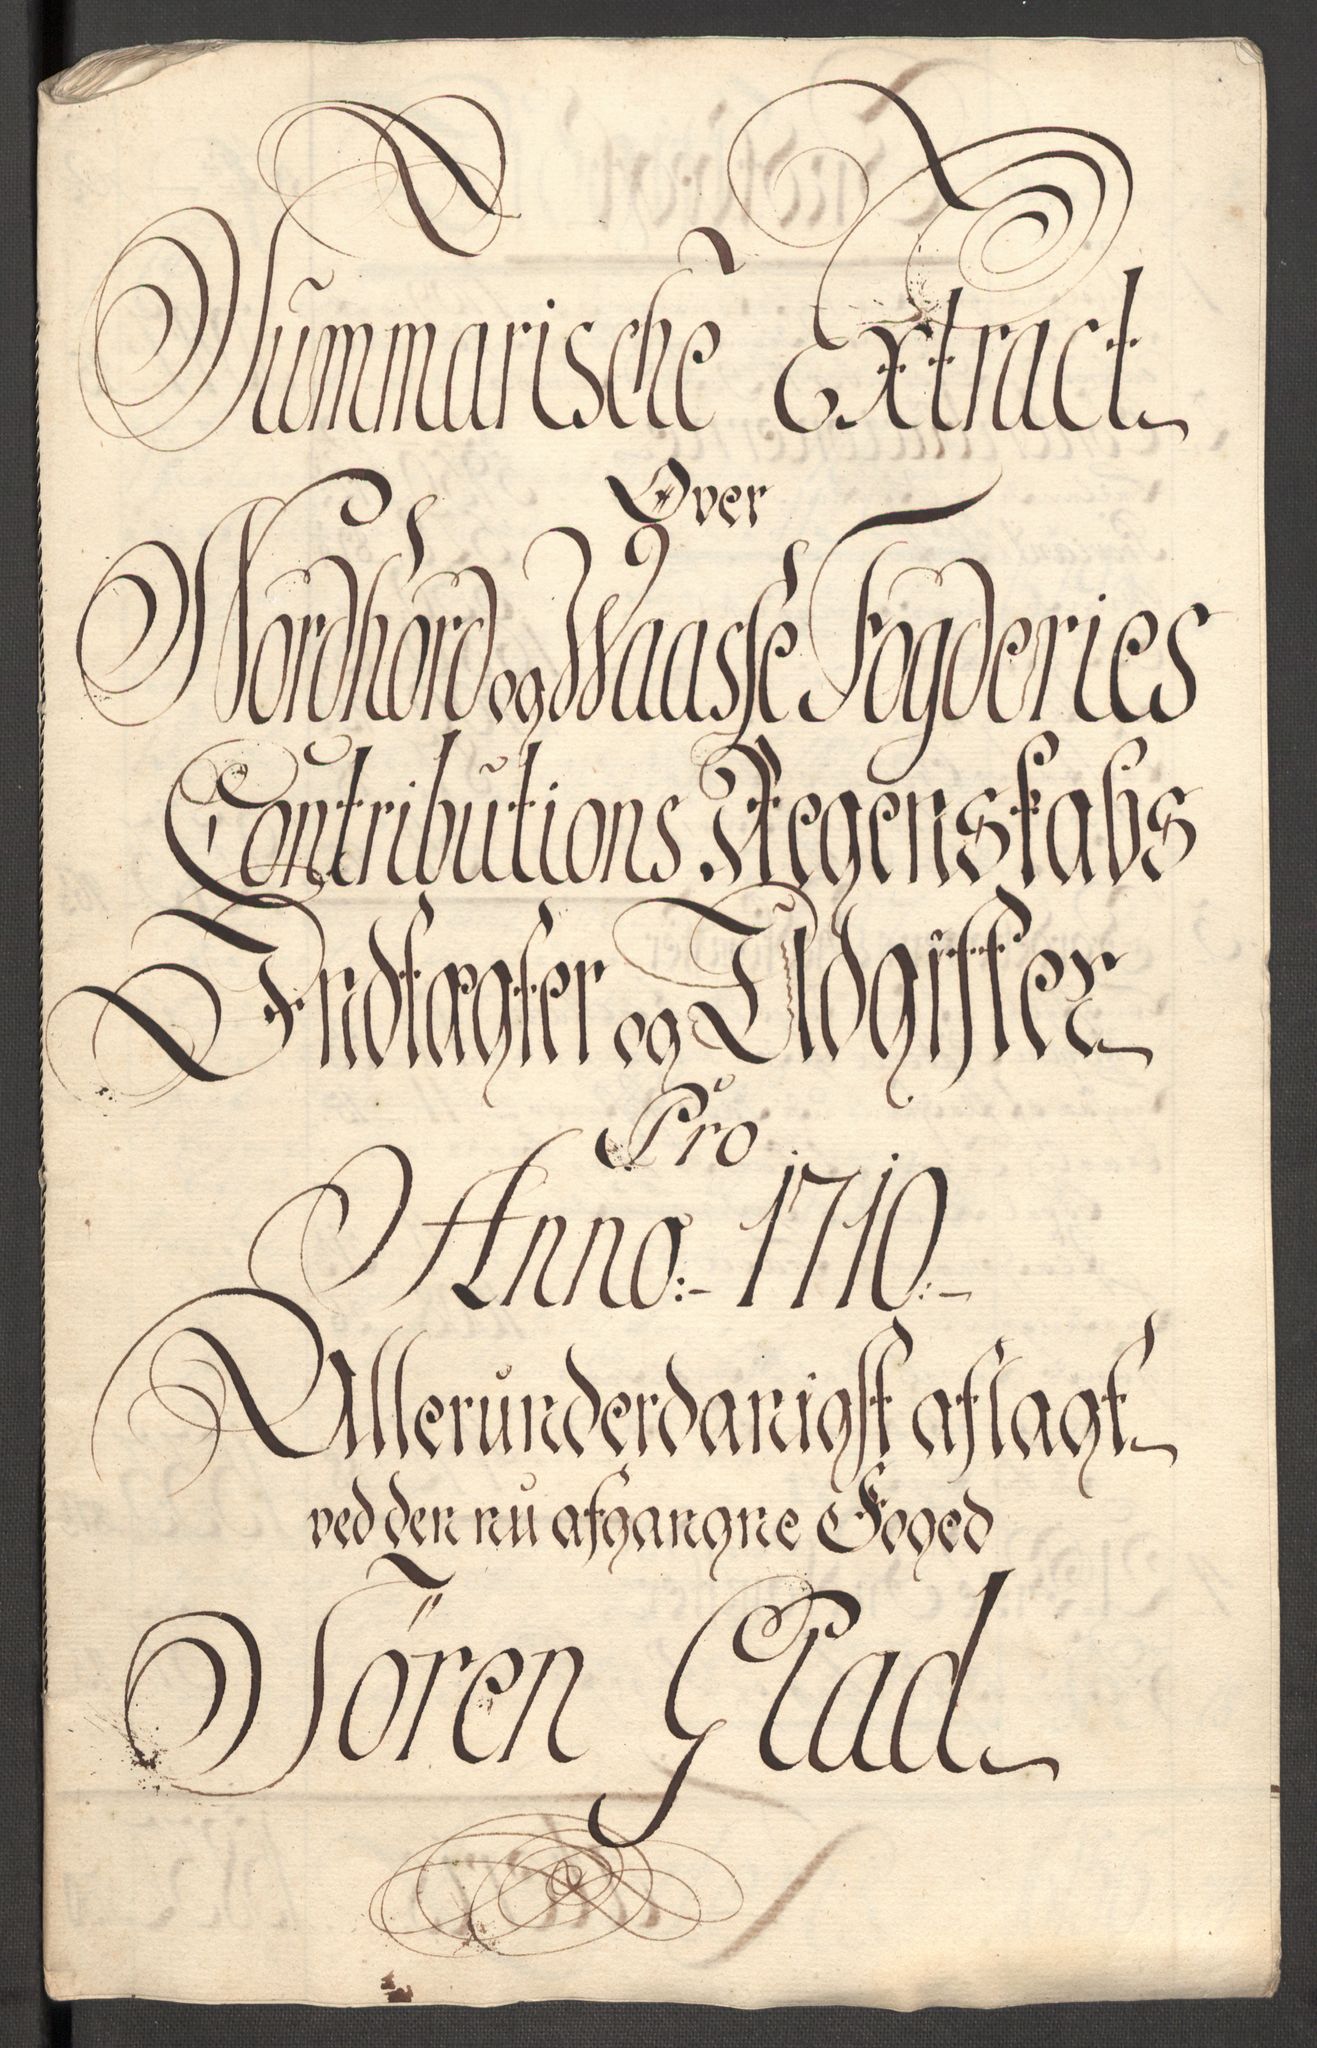 Summarische Extract
Over
Nordhord og Waasse Fogderies
Contributions Regenskabs
Indtægter og Udgifter
Pro
Anno:- 1710:-
Allerunderdanigst aflagt
ved den nu afgangne Foged
Sören Glad